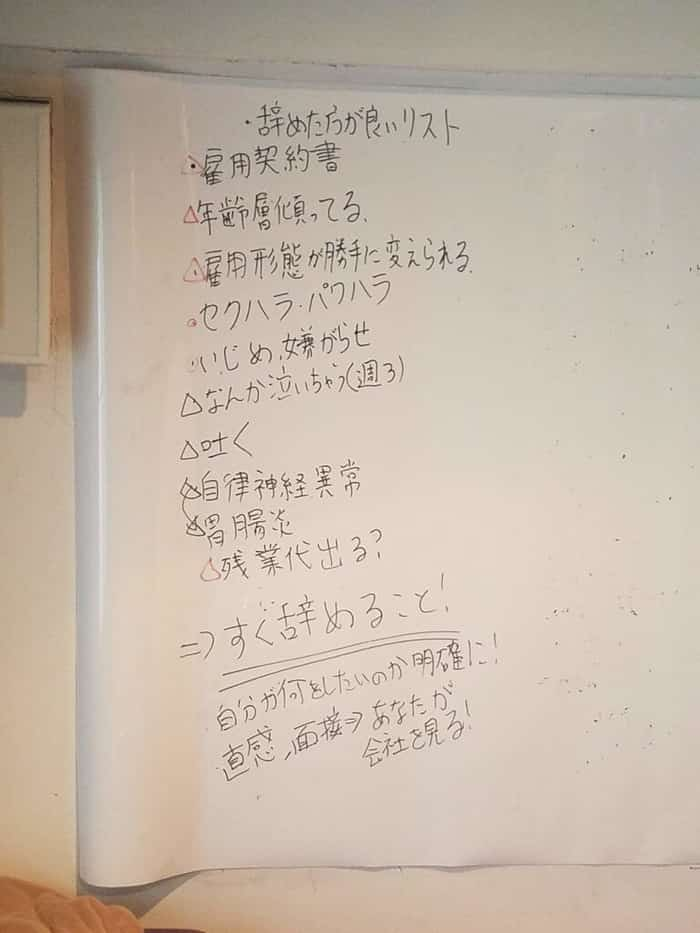 ・辞めた方が良いリスト
△雇用契約書
△年齢層傾ってる、
△雇用形態が勝手に変えられる、
・セクハラ・パワハラ
・いじめ、嫌がらせ
△なんか泣いちゃう(週3)
△吐く
△自律神経異常
△胃腸炎
△残業代出る?
⇒すぐ辞めること!
自分が何をしたいのか明確に!
直感、面接⇒あなたが
会社を見る!